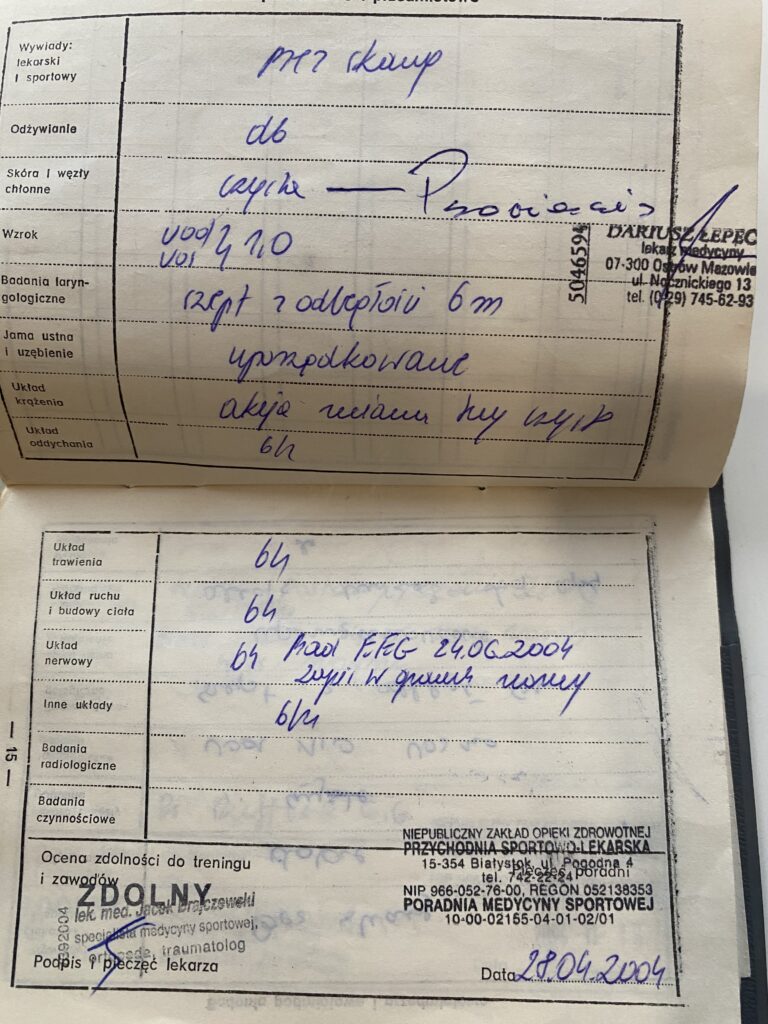 Wywiady:
lekarski
i sportowy
bez skarg
Odżywianie
db
Skóra i węzły
chłonne
czyste — Psoriasis
Wzrok
Vod
Vos } 1,0
5046594
DARIUSZ ŁEPEC
lekarz medycyny
07-300 Ostrów Mazowie
ul. Nocznickiego 13
tel. (0-29) 745-62-93
Badania laryn-
gologiczne
szept z odległości 6 m
Jama ustna
i uzębienie
uporządkowane
Układ
krążenia
akcja miarowa tony czyste
Układ
oddychania
bz
Układ
trawienia
bz
Układ ruchu
i budowy ciała
bz
Układ
nerwowy
bz Bad EEG 24.06.2004
Zapis w granicach normy
Inne układy
bz
— 15 —
Badania
radiologiczne
Badania
czynnościowe
Ocena zdolności do treningu
i zawodów
ZDOLNY
lek. med. Jacek
specjalista medycyny sportowej,
ortopeda, traumatolog
Podpis i pieczęć lekarza
NIEPUBLICZNY ZAKŁAD OPIEKI ZDROWOTNEJ
PRZYCHODNIA SPORTOWO-LEKARSKA
15-354 Białystok, ul. Pogodna 4
tel. 742-22-24
pieczęć poradni
NIP 966-052-76-00, REGON 052138353
PORADNIA MEDYCYNY SPORTOWEJ
10-00-02155-04-01-02/01
Data 28.04.2004